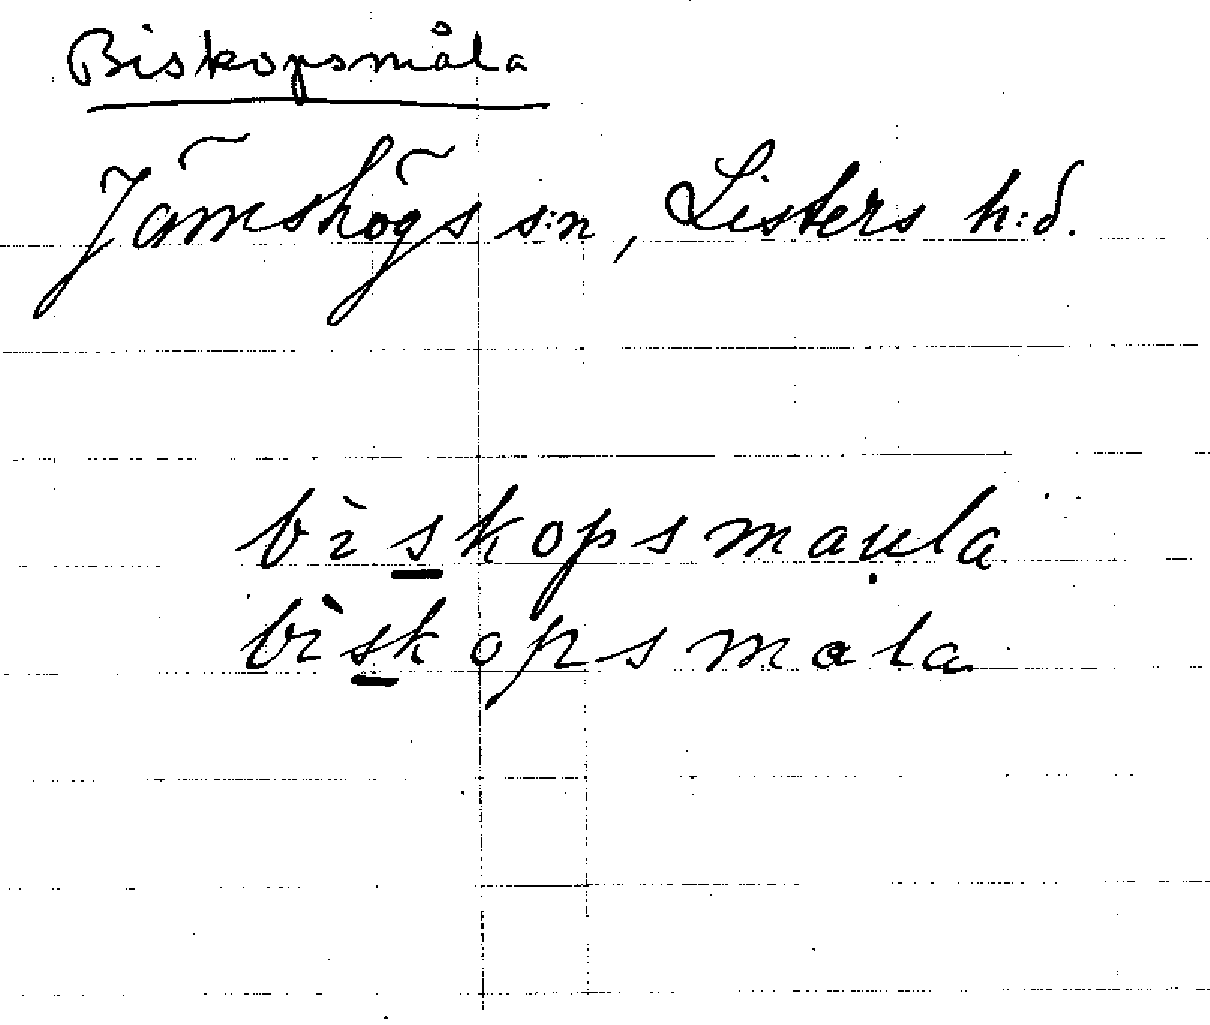 Biskopsmåla
Jämshögs s:n, Listers h:d.
bìskopsmaụla
bìskopsmala